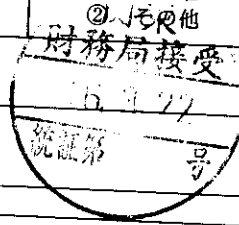 ② その他
財務局接受
統証第 号